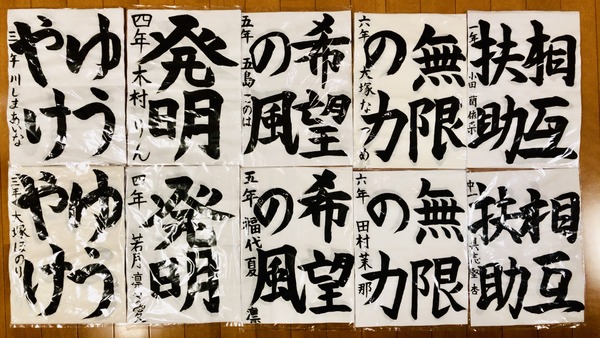 ゆう
やけ
三年 川しまあいな
発明
四年 木村 りん
希望
の風
五年 五島 このは
無限
の力
六年 大塚 なつめ
相互
扶助
一年 小田
ゆう
やけ
三年 大塚ほのり
発明
四年 若月 凛
希望
の風
五年 福代 夏凛
無限
の力
六年 田村 茉那
相互
扶助